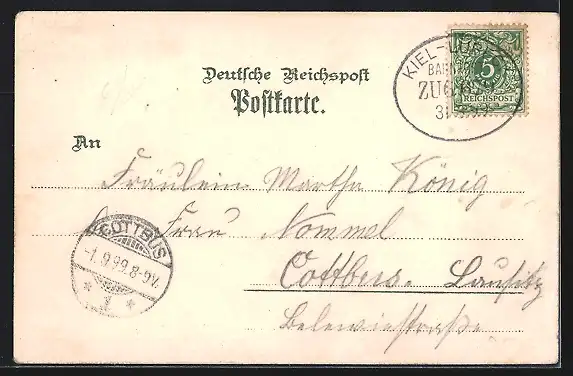 Deutsche Reichspost
Postkarte.
KIEL-
ZUG 629
31
5
REICHSPOST
An
Fräulein Martha König
Frau Nommel
Cottbus. Lausitz
COTTBUS
-1.9.99.8-9V.
* 1 *